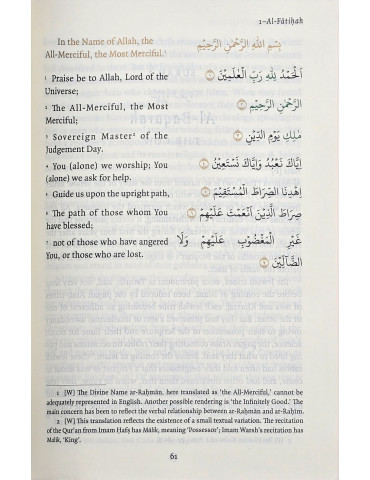 1–Al-Fātiḥah
In the Name of Allah, the
All-Merciful, the Most Merciful.¹
1 Praise be to Allah, Lord of the
Universe;
2 The All-Merciful, the Most
Merciful;
3 Sovereign Master² of the
Judgement Day.
4 You (alone) we worship; You
(alone) we ask for help.
5 Guide us upon the upright path,
6 The path of those whom You
have blessed;
7 not of those who have angered
You, or those who are lost.
بِسْمِ اللَّهِ الرَّحْمَٰنِ الرَّحِيمِ
الْحَمْدُ لِلَّهِ رَبِّ الْعَٰلَمِينَ
الرَّحْمَٰنِ الرَّحِيمِ
مَلِكِ يَوْمِ الدِّينِ
إِيَّاكَ نَعْبُدُ وَإِيَّاكَ نَسْتَعِينُ
اهْدِنَا الصِّرَاطَ الْمُسْتَقِيمَ
صِرَاطَ الَّذِينَ أَنْعَمْتَ عَلَيْهِمْ
غَيْرِ الْمَغْضُوبِ عَلَيْهِمْ وَلَا
الضَّالِّينَ
1 [W] The Divine Name ar-Raḥmān, here translated as 'the All-Merciful,' cannot be
adequately represented in English. Another possible rendering is 'the Infinitely Good.' The
main concern has been to reflect the verbal relationship between ar-Raḥmān and ar-Raḥīm.
2 [W] This translation reflects the existence of a small textual variation. The recitation
of the Qur'an from Imam Ḥafṣ has Mālik, meaning 'Possessor'; Imam Warsh's recitation has
Malik, 'King'.
61